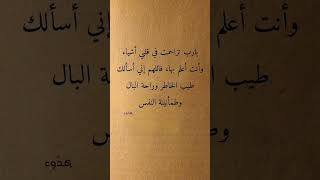 يارب تزاحمت في قلبي أشياء
وأنت أعلم بهاء فاللهم إني أسألك
طيب الخاطر وراحة البال
وطمأنينة النفس
هدوء
وأنت أعلم
إني أسألك
هدوء